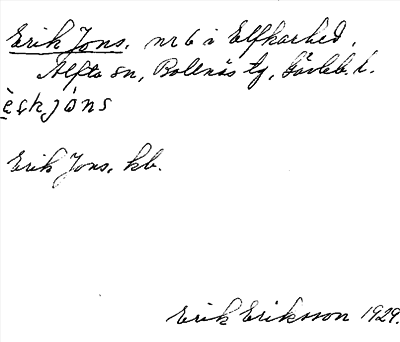 Erik Jons. nr 6 i Elfkarhed,
Alfta sn, Bollnäs tg, Gävleb. l.
èskjóns
Erik Jons. kb.
Erik Eriksson 1929.